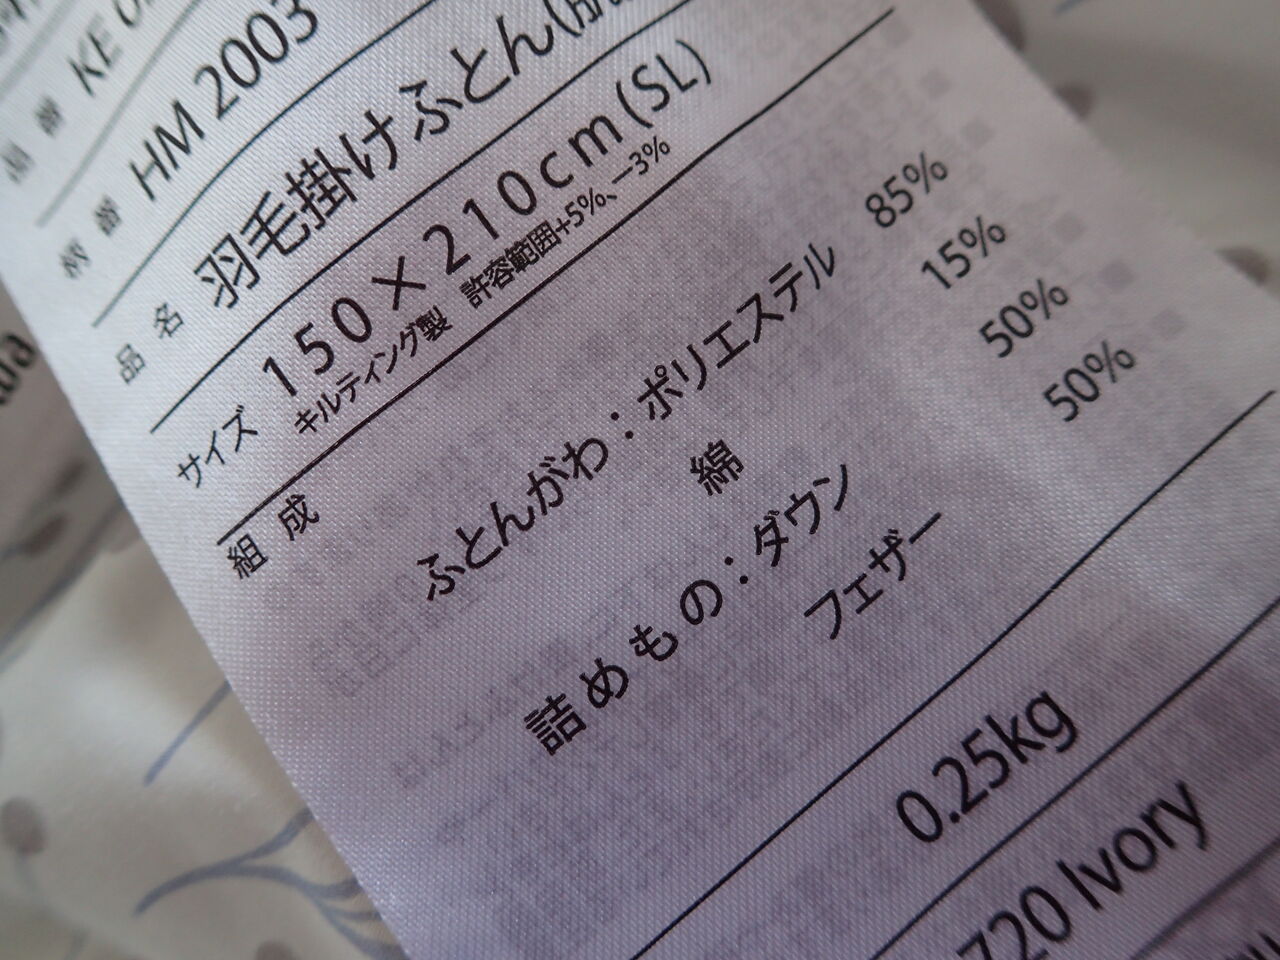 品番 KE
柄番 HM 2003
品名 羽毛掛けふとん(肌
サイズ 150×210cm(SL)
キルティング製 許容範囲+5%、−3%
組成 ふとんがわ：ポリエステル 85%
綿 15%
詰めもの：ダウン 50%
フェザー 50%
0.25kg
720 Ivory